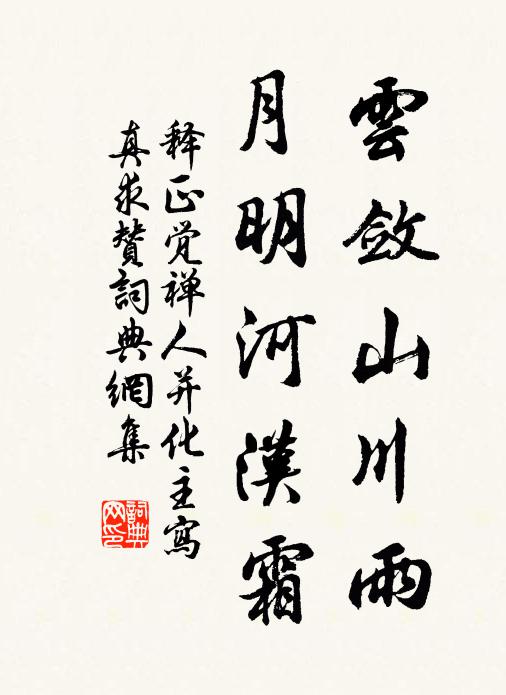 雲斂山川雨
月明河漢霜
释正觉禅人并化主寫
真求賛詞典網集
詞典网印